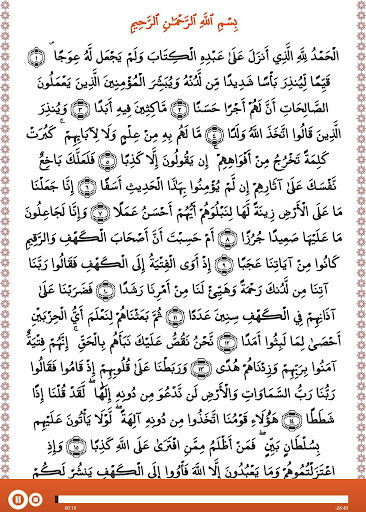 بِسْمِ اللَّهِ الرَّحْمَٰنِ الرَّحِيمِ
الْحَمْدُ لِلَّهِ الَّذِي أَنزَلَ عَلَىٰ عَبْدِهِ الْكِتَابَ وَلَمْ يَجْعَل لَّهُ عِوَجًا ۜ ١
قَيِّمًا لِّيُنذِرَ بَأْسًا شَدِيدًا مِّن لَّدُنْهُ وَيُبَشِّرَ الْمُؤْمِنِينَ الَّذِينَ يَعْمَلُونَ
الصَّالِحَاتِ أَنَّ لَهُمْ أَجْرًا حَسَنًا ٢ مَّاكِثِينَ فِيهِ أَبَدًا ٣ وَيُنذِرَ
الَّذِينَ قَالُوا اتَّخَذَ اللَّهُ وَلَدًا ٤ مَّا لَهُم بِهِ مِنْ عِلْمٍ وَلَا لِآبَائِهِمْ ۚ كَبُرَتْ
كَلِمَةً تَخْرُجُ مِنْ أَفْوَاهِهِمْ ۚ إِن يَقُولُونَ إِلَّا كَذِبًا ٥ فَلَعَلَّكَ بَاخِعٌ
نَّفْسَكَ عَلَىٰ آثَارِهِمْ إِن لَّمْ يُؤْمِنُوا بِهَٰذَا الْحَدِيثِ أَسَفًا ٦ إِنَّا جَعَلْنَا
مَا عَلَى الْأَرْضِ زِينَةً لَّهَا لِنَبْلُوَهُمْ أَيُّهُمْ أَحْسَنُ عَمَلًا ٧ وَإِنَّا لَجَاعِلُونَ
مَا عَلَيْهَا صَعِيدًا جُرُزًا ٨ أَمْ حَسِبْتَ أَنَّ أَصْحَابَ الْكَهْفِ وَالرَّقِيمِ
كَانُوا مِنْ آيَاتِنَا عَجَبًا ٩ إِذْ أَوَى الْفِتْيَةُ إِلَى الْكَهْفِ فَقَالُوا رَبَّنَا
آتِنَا مِن لَّدُنكَ رَحْمَةً وَهَيِّئْ لَنَا مِنْ أَمْرِنَا رَشَدًا ١٠ فَضَرَبْنَا عَلَىٰ
آذَانِهِمْ فِي الْكَهْفِ سِنِينَ عَدَدًا ١١ ثُمَّ بَعَثْنَاهُمْ لِنَعْلَمَ أَيُّ الْحِزْبَيْنِ
أَحْصَىٰ لِمَا لَبِثُوا أَمَدًا ١٢ نَّحْنُ نَقُصُّ عَلَيْكَ نَبَأَهُم بِالْحَقِّ ۚ إِنَّهُمْ فِتْيَةٌ
آمَنُوا بِرَبِّهِمْ وَزِدْنَاهُمْ هُدًى ١٣ وَرَبَطْنَا عَلَىٰ قُلُوبِهِمْ إِذْ قَامُوا فَقَالُوا
رَبُّنَا رَبُّ السَّمَاوَاتِ وَالْأَرْضِ لَن نَّدْعُوَ مِن دُونِهِ إِلَٰهًا ۖ لَّقَدْ قُلْنَا إِذًا
شَطَطًا ١٤ هَٰؤُلَاءِ قَوْمُنَا اتَّخَذُوا مِن دُونِهِ آلِهَةً ۖ لَّوْلَا يَأْتُونَ عَلَيْهِم
بِسُلْطَانٍ بَيِّنٍ ۖ فَمَنْ أَظْلَمُ مِمَّنِ افْتَرَىٰ عَلَى اللَّهِ كَذِبًا ١٥ وَإِذِ
اعْتَزَلْتُمُوهُمْ وَمَا يَعْبُدُونَ إِلَّا اللَّهَ فَأْوُوا إِلَى الْكَهْفِ يَنشُرْ لَكُمْ
00:19
-26:43